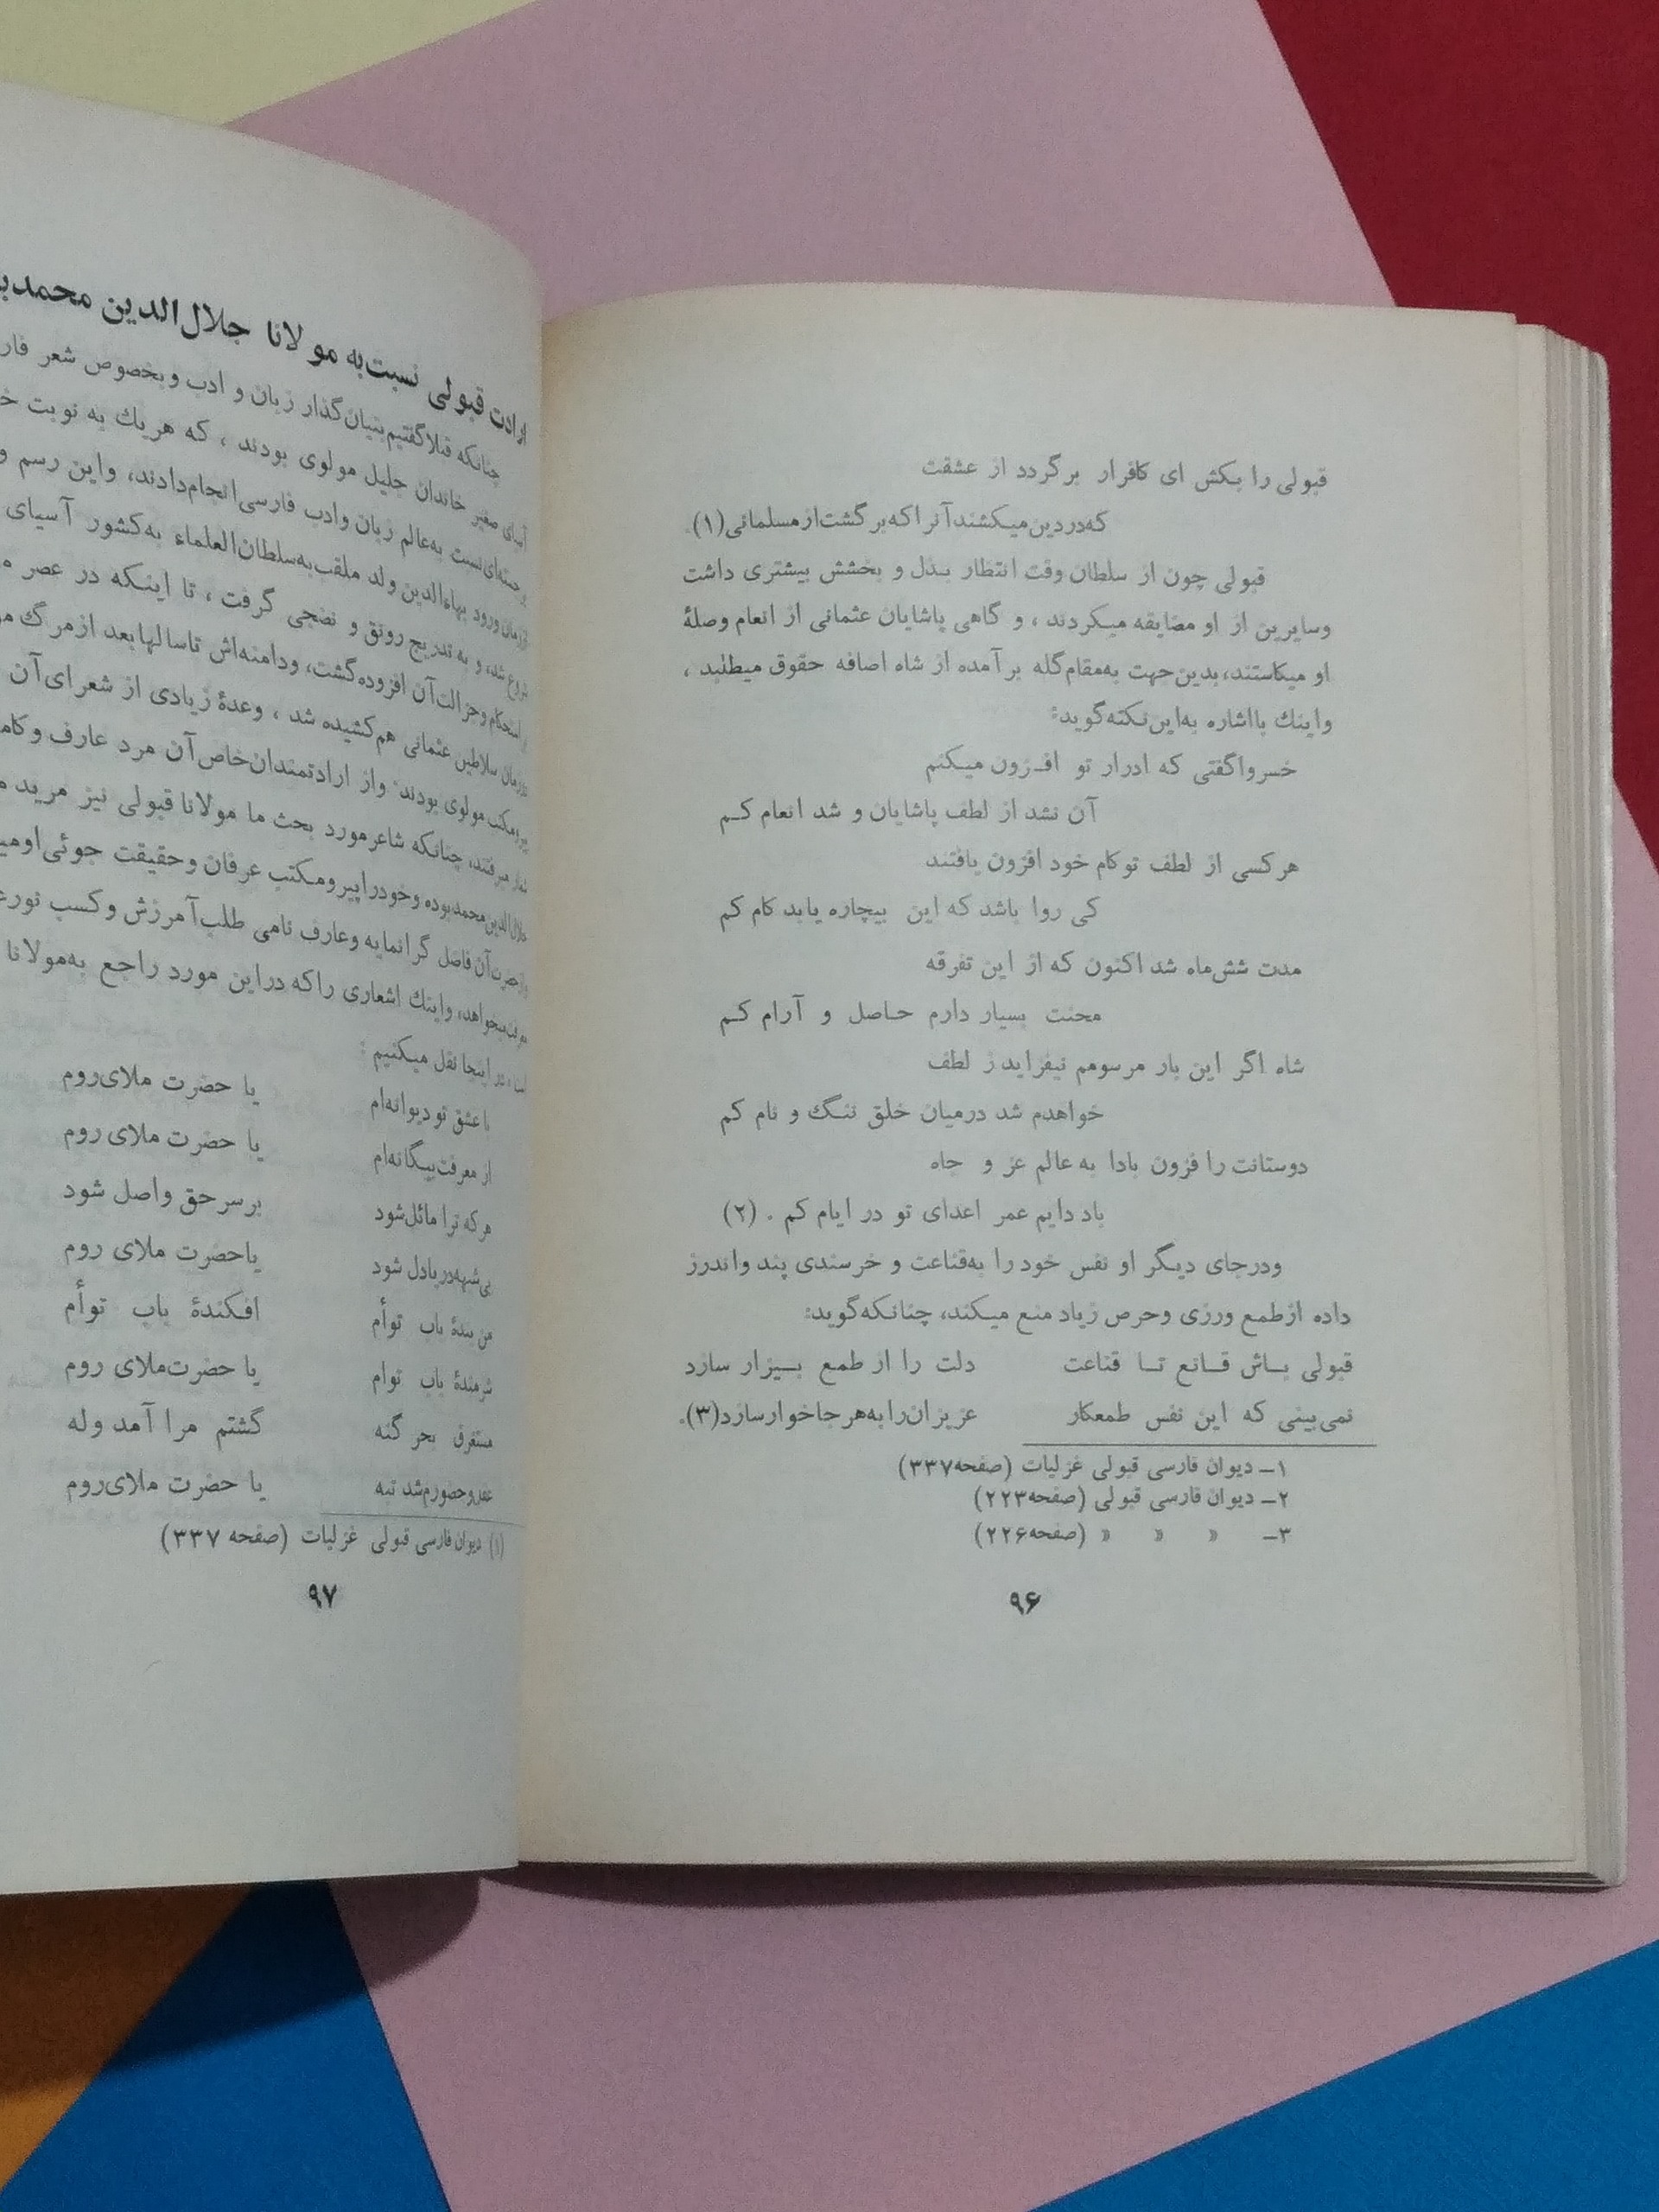 قبولی را بکش ای کافرار برگردد از عشقت
که‌دردین‌میکشندآنراکه‌برگشت‌ازمسلمانی(۱).
قبولی چون از سلطان وقت انتظار بذل و بخشش بیشتری داشت
وسایرین از او مضایقه میکردند ، و گاهی پاشایان عثمانی از انعام وصلۀ
او میکاستند،بدین‌جهت به‌مقام‌گله برآمده از شاه اضافه حقوق میطلبد ،
واینك بااشاره به‌این‌نکته‌گوید:
خسرواگفتی که ادرار تو افزون میکنم
آن نشد از لطف پاشایان و شد انعام کم
هرکسی از لطف توکام خود افزون یافتند
کی روا باشد که این بیچاره یابد کام کم
مدت شش‌ماه شد اکنون که از این تفرقه
محنت بسیار دارم حاصل و آرام کم
شاه اگر این بار مرسومم نیفزاید ز لطف
خواهدم شد درمیان خلق ننگ و نام کم
دوستانت را فزون بادا به عالم عز و جاه
باد دایم عمر اعدای تو در ایام کم . (۲)
ودرجای دیگر او نفس خود را به‌قناعت و خرسندی پند واندرز
داده ازطمع ورزی وحرص زیاد منع میکند، چنانکه‌گوید:
قبولی باش قانع تا قناعت دلت را از طمع بیزار سازد
نمی‌بینی که این نفس طمعکار عزیزان‌رابه‌هرجاخوارسازد(۳).
۱– دیوان فارسی قبولی غزلیات (صفحه۳۳۷)
۲– دیوان فارسی قبولی (صفحه۲۲۳)
۳– » » » (صفحه۲۲۶)
۹۶
ارادت قبولی نسبت‌به مولانا جلال‌الدین
چنانکه قبلاگفتیم‌بنیان‌گذار زبان و ادب وبخصوص شعر
آسیای صغیر خاندان جلیل مولوی بودند ، که هریك به نوبت
نسبت به‌عالم زبان وادب فارسی‌انجام‌دادند، واین رسم و
اززمان ورود بهاءالدین ولد ملقب‌به‌سلطان‌العلماء به‌کشور آسیای
شروع شد، و به تدریج رونق و نضجی گرفت ، تا اینکه در عصر
استحکام وجزالت‌آن افزوده‌گشت، ودامنه‌اش تاسالهابعد ازمرگ
درزمان سلاطین عثمانی هم‌کشیده شد ، وعدۀ زیادی از شعرای‌آن
پیرومکتب مولوی بودند واز ارادتمندان‌خاص‌آن مرد عارف و
بشمار میرفتند، چنانکه شاعرمورد بحث ما مولانا قبولی نیز مرید
جلال‌الدین‌محمدبوده وخودراپیرومکتب عرفان وحقیقت جوئی‌او
آن فاضل گرانمایه وعارف نامی طلب‌آمرزش وکسب
میخواهد، واینك اشعاری راکه دراین مورد راجع به‌مولانا
در اینجا نقل میکنیم :
باعشق تو دیوانه‌ام یا حضرت ملای‌روم
از معرفت‌بیگانه‌ام یا حضرت ملای روم
هرکه ترا مائل‌شود برسرحق واصل شود
بی‌شبهه‌دریادل شود یاحضرت ملای روم
من بندۀ باب توأم افکندۀ باب توأم
شرمندۀ باب توام یا حضرت‌ملای روم
مستغرق بحر گنه گشتم مرا آمد وله
عقل‌وحضورم‌شد تبه یا حضرت ملای‌روم
(۱) دیوان فارسی قبولی غزلیات (صفحه ۳۳۷)
۹۷